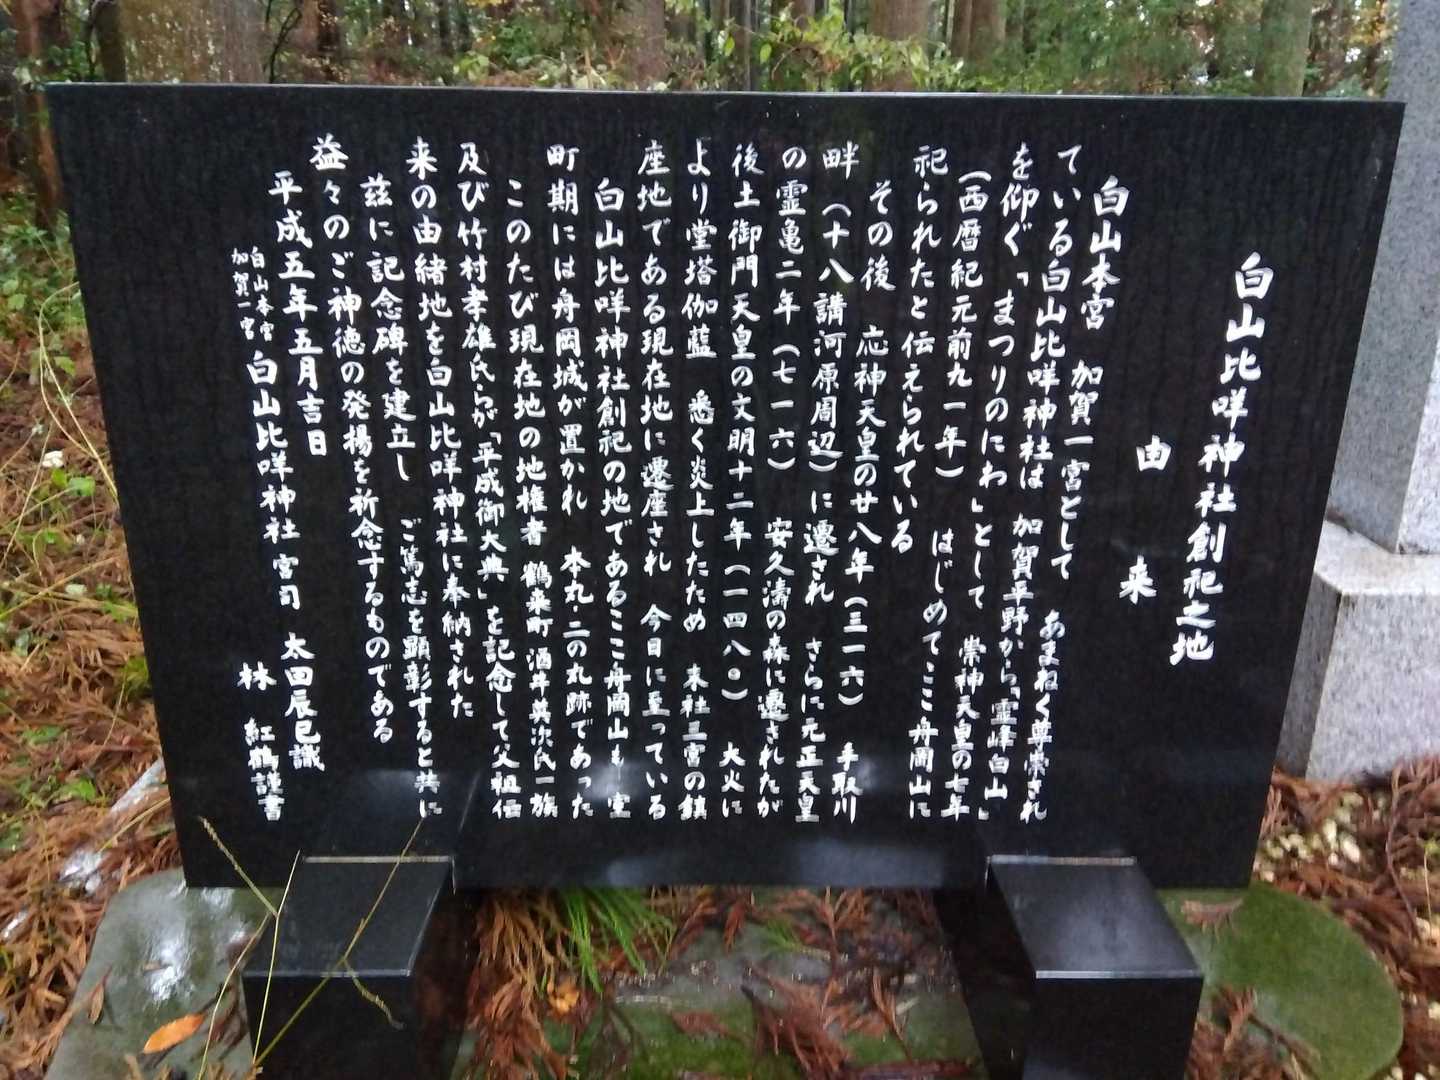 白山比咩神社創祀之地
由来
白山本宮　加賀一宮として　あまねく尊崇され
ている白山比咩神社は　加賀平野から「霊峰白山」
を仰ぐ「まつりのにわ」として　崇神天皇の七年
（西暦紀元前九一年）　はじめてここ舟岡山に
祀られたと伝えられている
その後　応神天皇の廿八年（三一六）　手取川
畔（十八講河原周辺）に遷され　さらに元正天皇
の霊亀二年（七一六）　安久濤の森に遷されたが
後土御門天皇の文明十二年（一四八〇）　大火に
より堂塔伽藍　悉く炎上したため　末社三宮の鎮
座地である現在地に遷座され　今日に至っている
白山比咩神社創祀の地であるここ舟岡山も　室
町期には舟岡城が置かれ　本丸・二の丸跡であった
このたび現在地の地権者　鶴来町　酒井英次氏一族
及び竹村孝雄氏らが「平成御大典」を記念して父祖伝
来の由緒地を白山比咩神社に奉納された
茲に記念碑を建立し　ご篤志を顕彰すると共に
益々のご神徳の発揚を祈念するものである
平成五年五月吉日
白山本宮
加賀一宮　白山比咩神社　宮司　太田辰巳識
林　紅鶴謹書